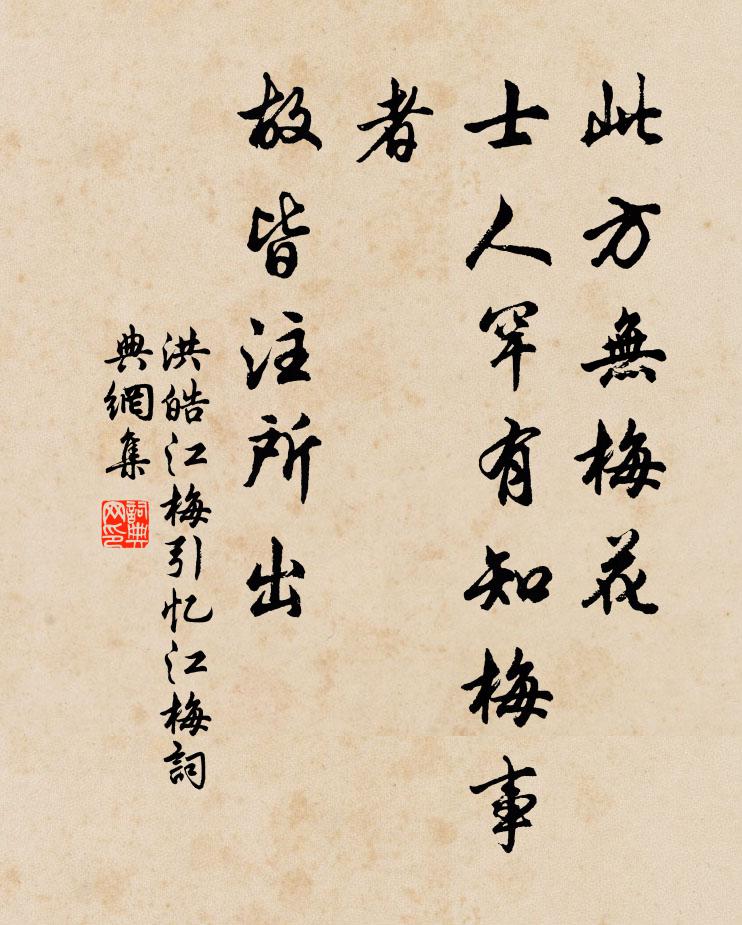 此方無梅花
士人罕有知梅事
者
故皆注所出
洪皓江梅引忆江梅詞
典網集
詞典
网印